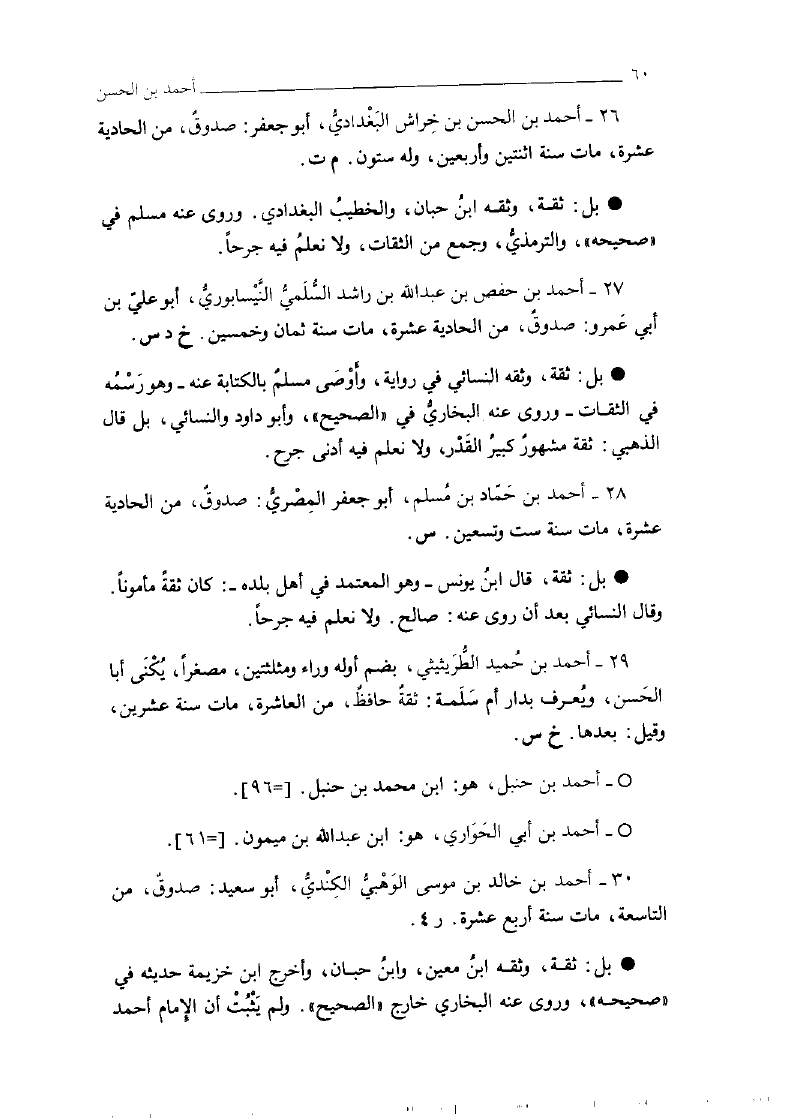 ٦٠ أحمد بن الحسن
٢٦ ـ أحمد بن الحسن بن خِراش البَغْداديُّ، أبو جعفر: صدوقٌ، من الحادية
عشرة، مات سنة اثنتين وأربعين، وله ستون. م ت.
● بل: ثقة، وثقه ابنُ حبان، والخطيبُ البغدادي. وروى عنه مسلم في
«صحيحه»، والترمذيُّ، وجمع من الثقات، ولا نعلمُ فيه جرحاً.
٢٧ ـ أحمد بن حفص بن عبدالله بن راشد السُّلَميُّ النَّيْسابوريُّ، أبو عليّ بن
أبي عَمرو: صدوقٌ، من الحادية عشرة، مات سنة ثمان وخمسين. خ د س.
● بل: ثقة، وثقه النسائي في رواية، وأَوْصَى مسلمٌ بالكتابة عنه ـ وهو رَسْمُه
في الثقات ـ وروى عنه البخاريُّ في «الصحيح»، وأبو داود والنسائي، بل قال
الذهبي: ثقة مشهورٌ كبيرُ القَدْر، ولا نعلم فيه أدنى جرح.
٢٨ ـ أحمد بن حَمّاد بن مُسلم، أبو جعفر المِصْريُّ: صدوقٌ، من الحادية
عشرة، مات سنة ست وتسعين. س.
● بل: ثقة، قال ابنُ يونس ـ وهو المعتمد في أهل بلده ـ: كان ثقةً مأموناً.
وقال النسائي بعد أن روى عنه: صالح. ولا نعلم فيه جرحاً.
٢٩ ـ أحمد بن حُميد الطُّرَيثيثي، بضم أوله وراء ومثلثتين، مصغراً، يُكْنَى أبا
الحَسن، ويُعـرف بدار أم سَلَمـة: ثقةٌ حافظٌ، من العاشرة، مات سنة عشرين،
وقيل: بعدها. خ س.
○ ـ أحمد بن حنبل، هو: ابن محمد بن حنبل. [=٩٦].
○ ـ أحمد بن أبي الحَوَاري، هو: ابن عبدالله بن ميمون. [=٦١].
٣٠ ـ أحمد بن خالد بن موسى الوَهْبيُّ الكِنْديُّ، أبو سعيد: صدوقٌ، من
التاسعة، مات سنة أربع عشرة. ر ٤.
● بل: ثقـة، وثقـه ابنُ معين، وابنُ حبـان، وأخرج ابن خزيمة حديثه في
«صحيحـه»، وروى عنه البخاري خارج «الصحيح». ولم يَثْبُتْ أن الإمام أحمد